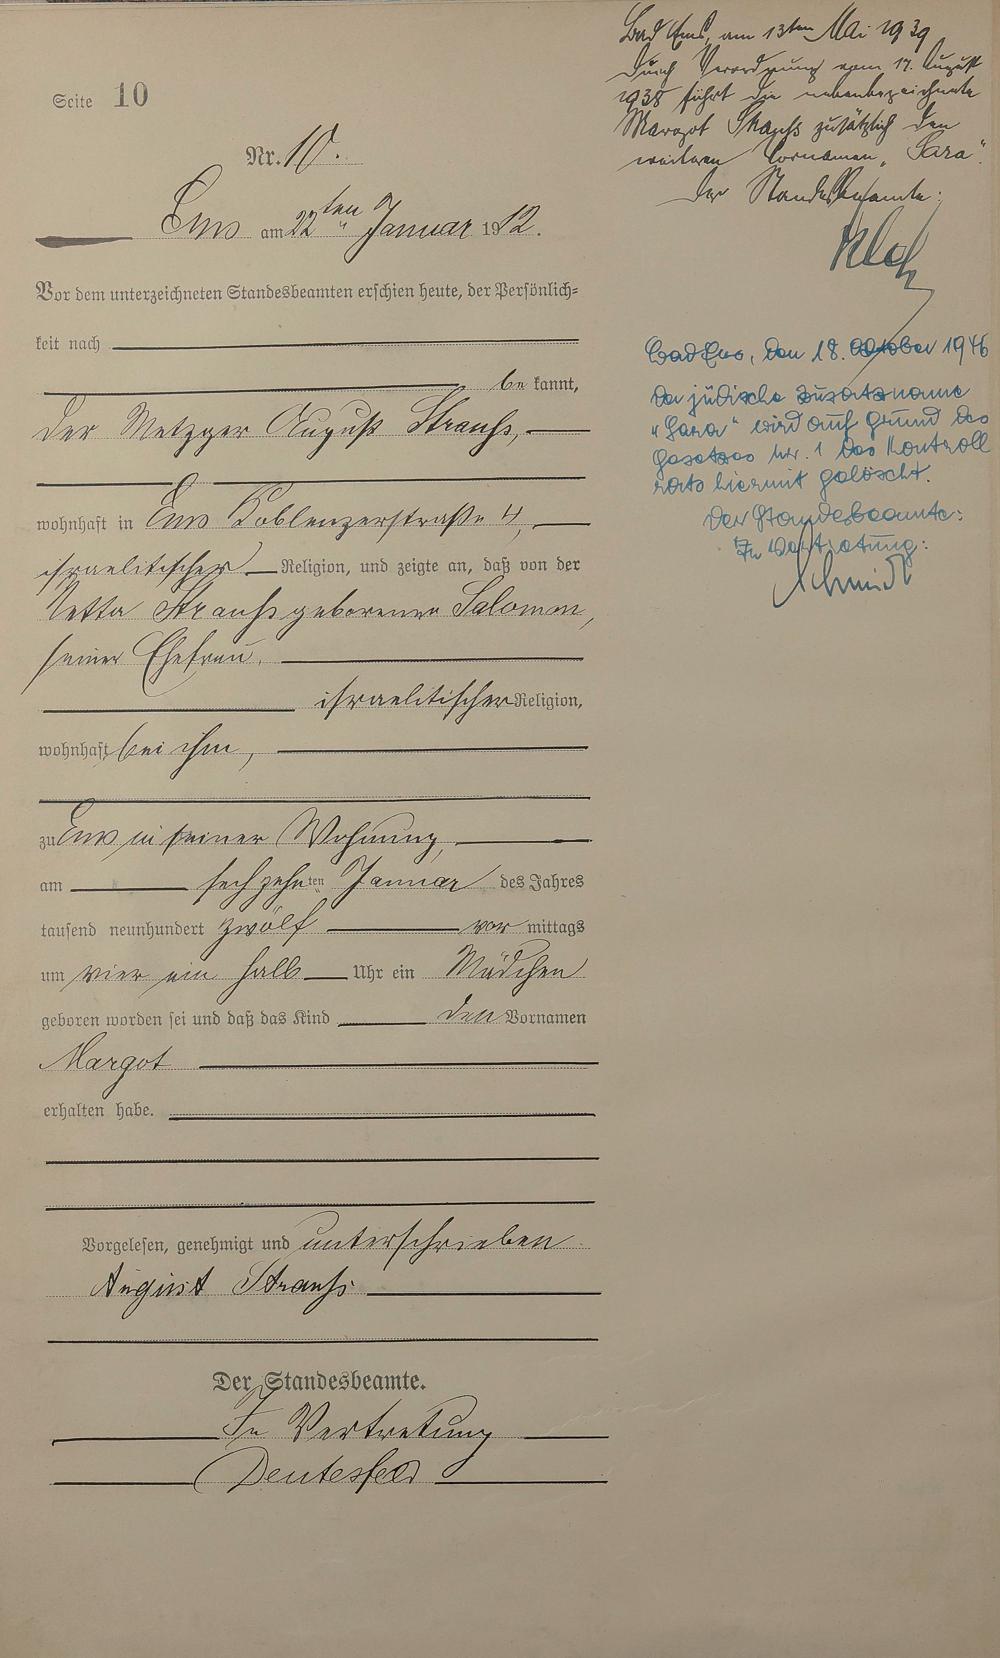 Seite 10
Nr. 10.
Ems am 22ten Januar 1912.
Vor dem unterzeichneten Standesbeamten erschien heute, der Persönlich=
keit nach
be kannt,
der Metzger August Strauß,
wohnhaft in Ems Koblenzerstraße 4,
israelitischer Religion, und zeigte an, daß von der
Netta Strauß geborenen Salomon,
seiner Ehefrau,
israelitischer Religion,
wohnhaft bei ihm,
zu Ems in seiner Wohnung,
am sechzehnten Januar des Jahres
tausend neunhundert zwölf vor mittags
um vier ein halb Uhr ein Mädchen
geboren worden sei und daß das Kind den Vornamen
Margot
erhalten habe.
Vorgelesen, genehmigt und unterschrieben
August Strauß
Der Standesbeamte.
In Vertretung
Bad Ems, am 13ten Mai 1939
Durch Verordnung vom 17. August
1938 führt die nebenbezeichnete
Margot Strauß zusätzlich den
weiteren Vornamen „Sara“.
Der Standesbeamte:
Bad Ems, den 18. Oktober 1946
Der jüdische Zusatzname
„Sara“ wird auf Grund des
Gesetzes Nr. 1 des Kontroll
rats hiermit gelöscht.
Der Standesbeamte:
In Vertretung:
Schmidt